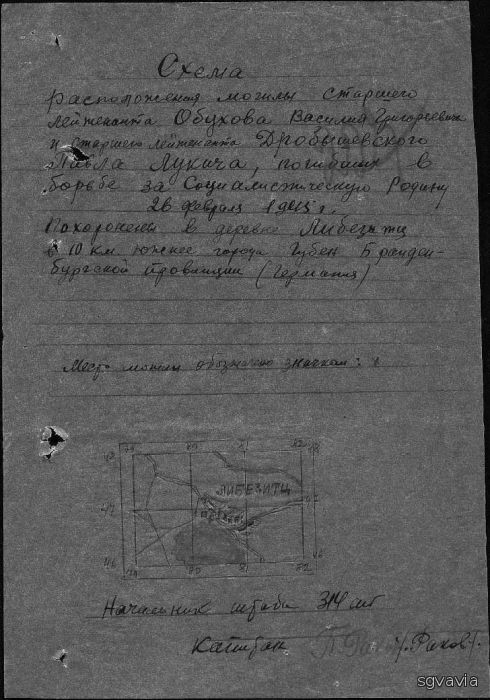 Схема
расположения могилы старшего
лейтенанта Обухова Василия Григорьевича
и старшего лейтенанта Дробышевского
Павла Лукича, погибших в
борьбе за Социалистическую Родину
26 февраля 1945 г.
Похоронены в деревне Либезитц
в 10 км южнее города Губен Бранден-
бургской провинции (Германия)
Место могилы обозначено значком:
79 80 81 82
48 48
ЛИБЕЗИТЦ
47 47
46 46
79 80 81 82
Начальник штаба 314
Капитан /Рахов/.
sgvavia